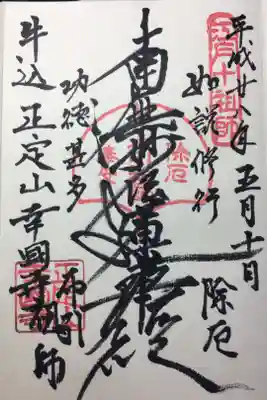 平成廿年 五月十日
如説修行 除厄
南無妙法蓮華経
功徳甚多 布引
牛込 正定山 幸國寺 祖師